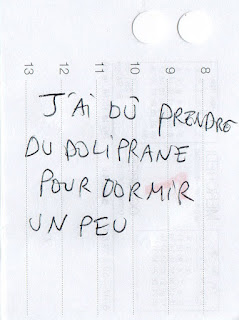 13 12 11 10 9 8
J'AI DÛ PRENDRE
DU DOLIPRANE
POUR DORMIR
UN PEU